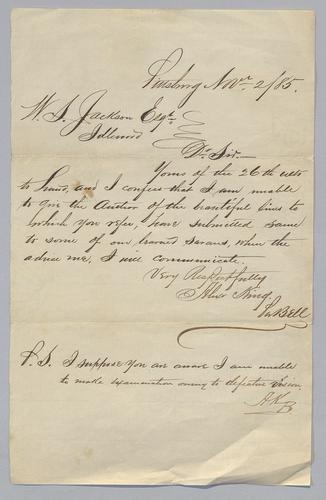 Pittsburg Novr 2/85.
W. S. Jackson Esqr
Idlewood
Dr Sir—
Yours of the 26th ulto
to hand, and I confess that I am unable
to give the Author of the beautiful lines to
which you refer, have submitted same
to some of our learned savans, when the
advise me, I will communicate.
Very Respectfully
Alexr King
Per Bell
P. S. I suppose you are aware I am unable
to make examination owing to defective vision.
A K